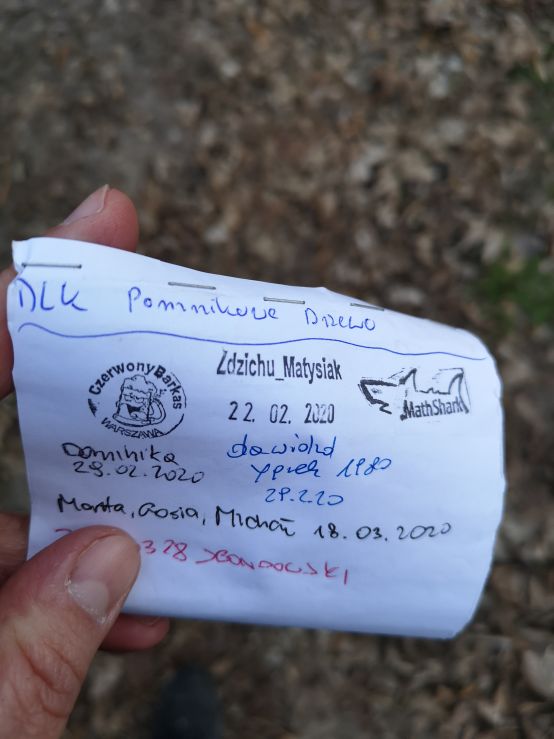 DLK Pomnikowe Drzewo
CzerwonyBarkas
WARSZAWA
Zdzichu_Matysiak
22. 02. 2020
MathShark
Dominika
29.02.2020
dawidxd
1980
29.2.20
Marta, Gosia, Michał 18.03.2020
328